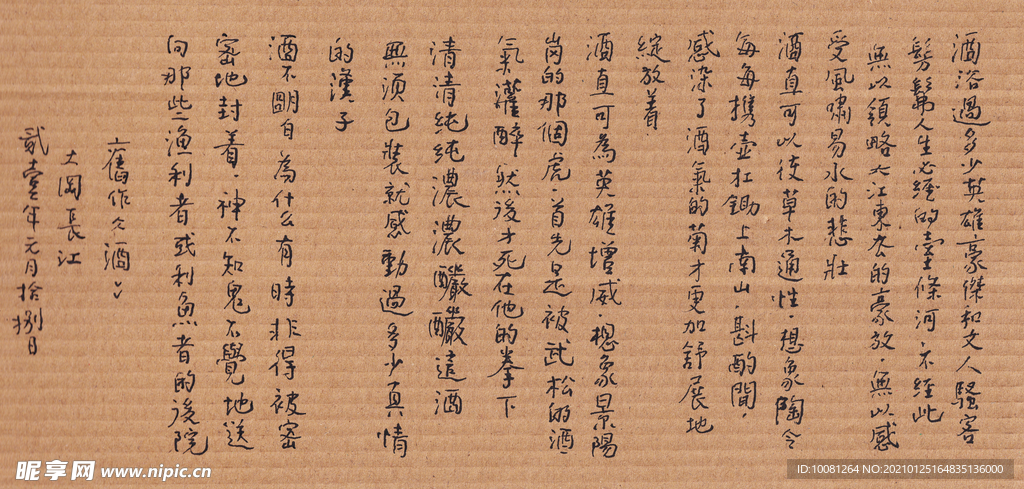 酒浴過多少英雄豪傑和文人騷客
髣髴人生必經的壹條河．不經此
無以領略大江東去的豪放．無以感
受風嘯易水的悲壯
酒直可以使草木通性．想象陶令
每每攜壺扛鋤上南山．斟酌間．
感染了酒氣的菊才更加舒展地
綻放着．
酒直可為英雄增威．想象景陽
崗的那個虎．首先是被武松的酒
氣灌醉．然後才死在他的拳下
清清純純濃濃釅釅這酒
無須包裝就感動過多少真情
的漢子
酒不明白為什么有時非得被密
密地封着．神不知鬼不覺地送
向那些漁利者或利漁者的後院
舊作之酒
大岡長江
貳壹年元月拾捌日
昵享网 www.nipic.cn
ID:10081264 NO:20210125164835136000